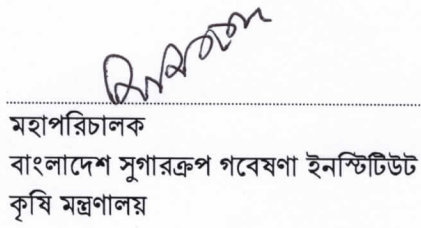 মহাপরিচালক
বাংলাদেশ সুগারক্রপ গবেষণা ইনস্টিটিউট
কৃষি মন্ত্রণালয়